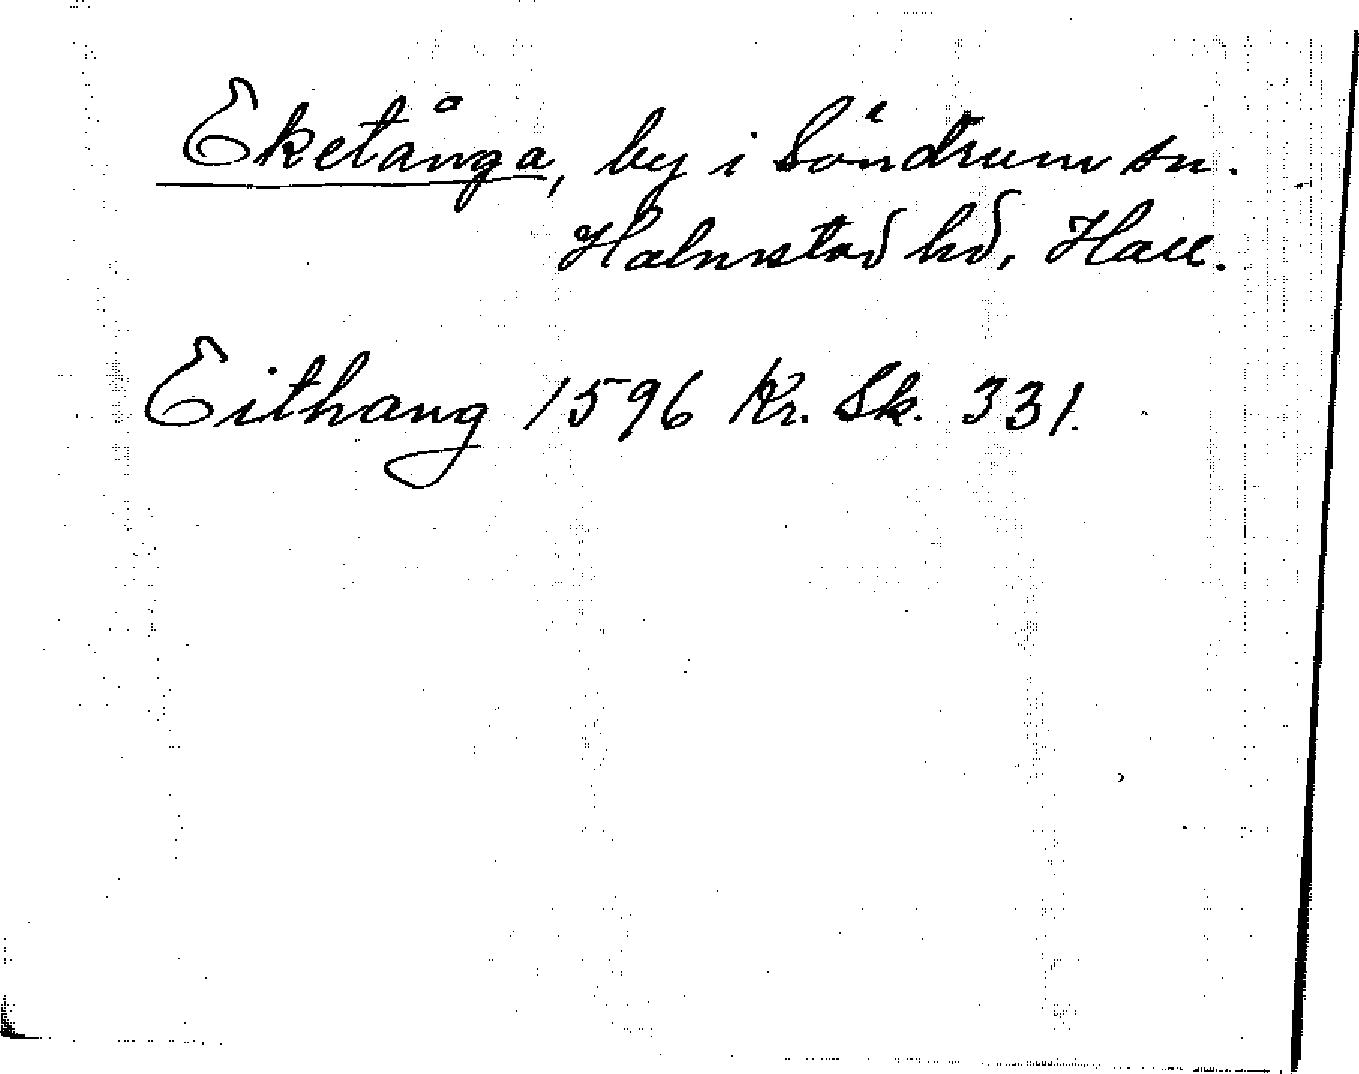 Eketånga, by i Söndrum sn.
Halmstad hd, Hall.
Eithang 1596 Kr. Sk. 331.